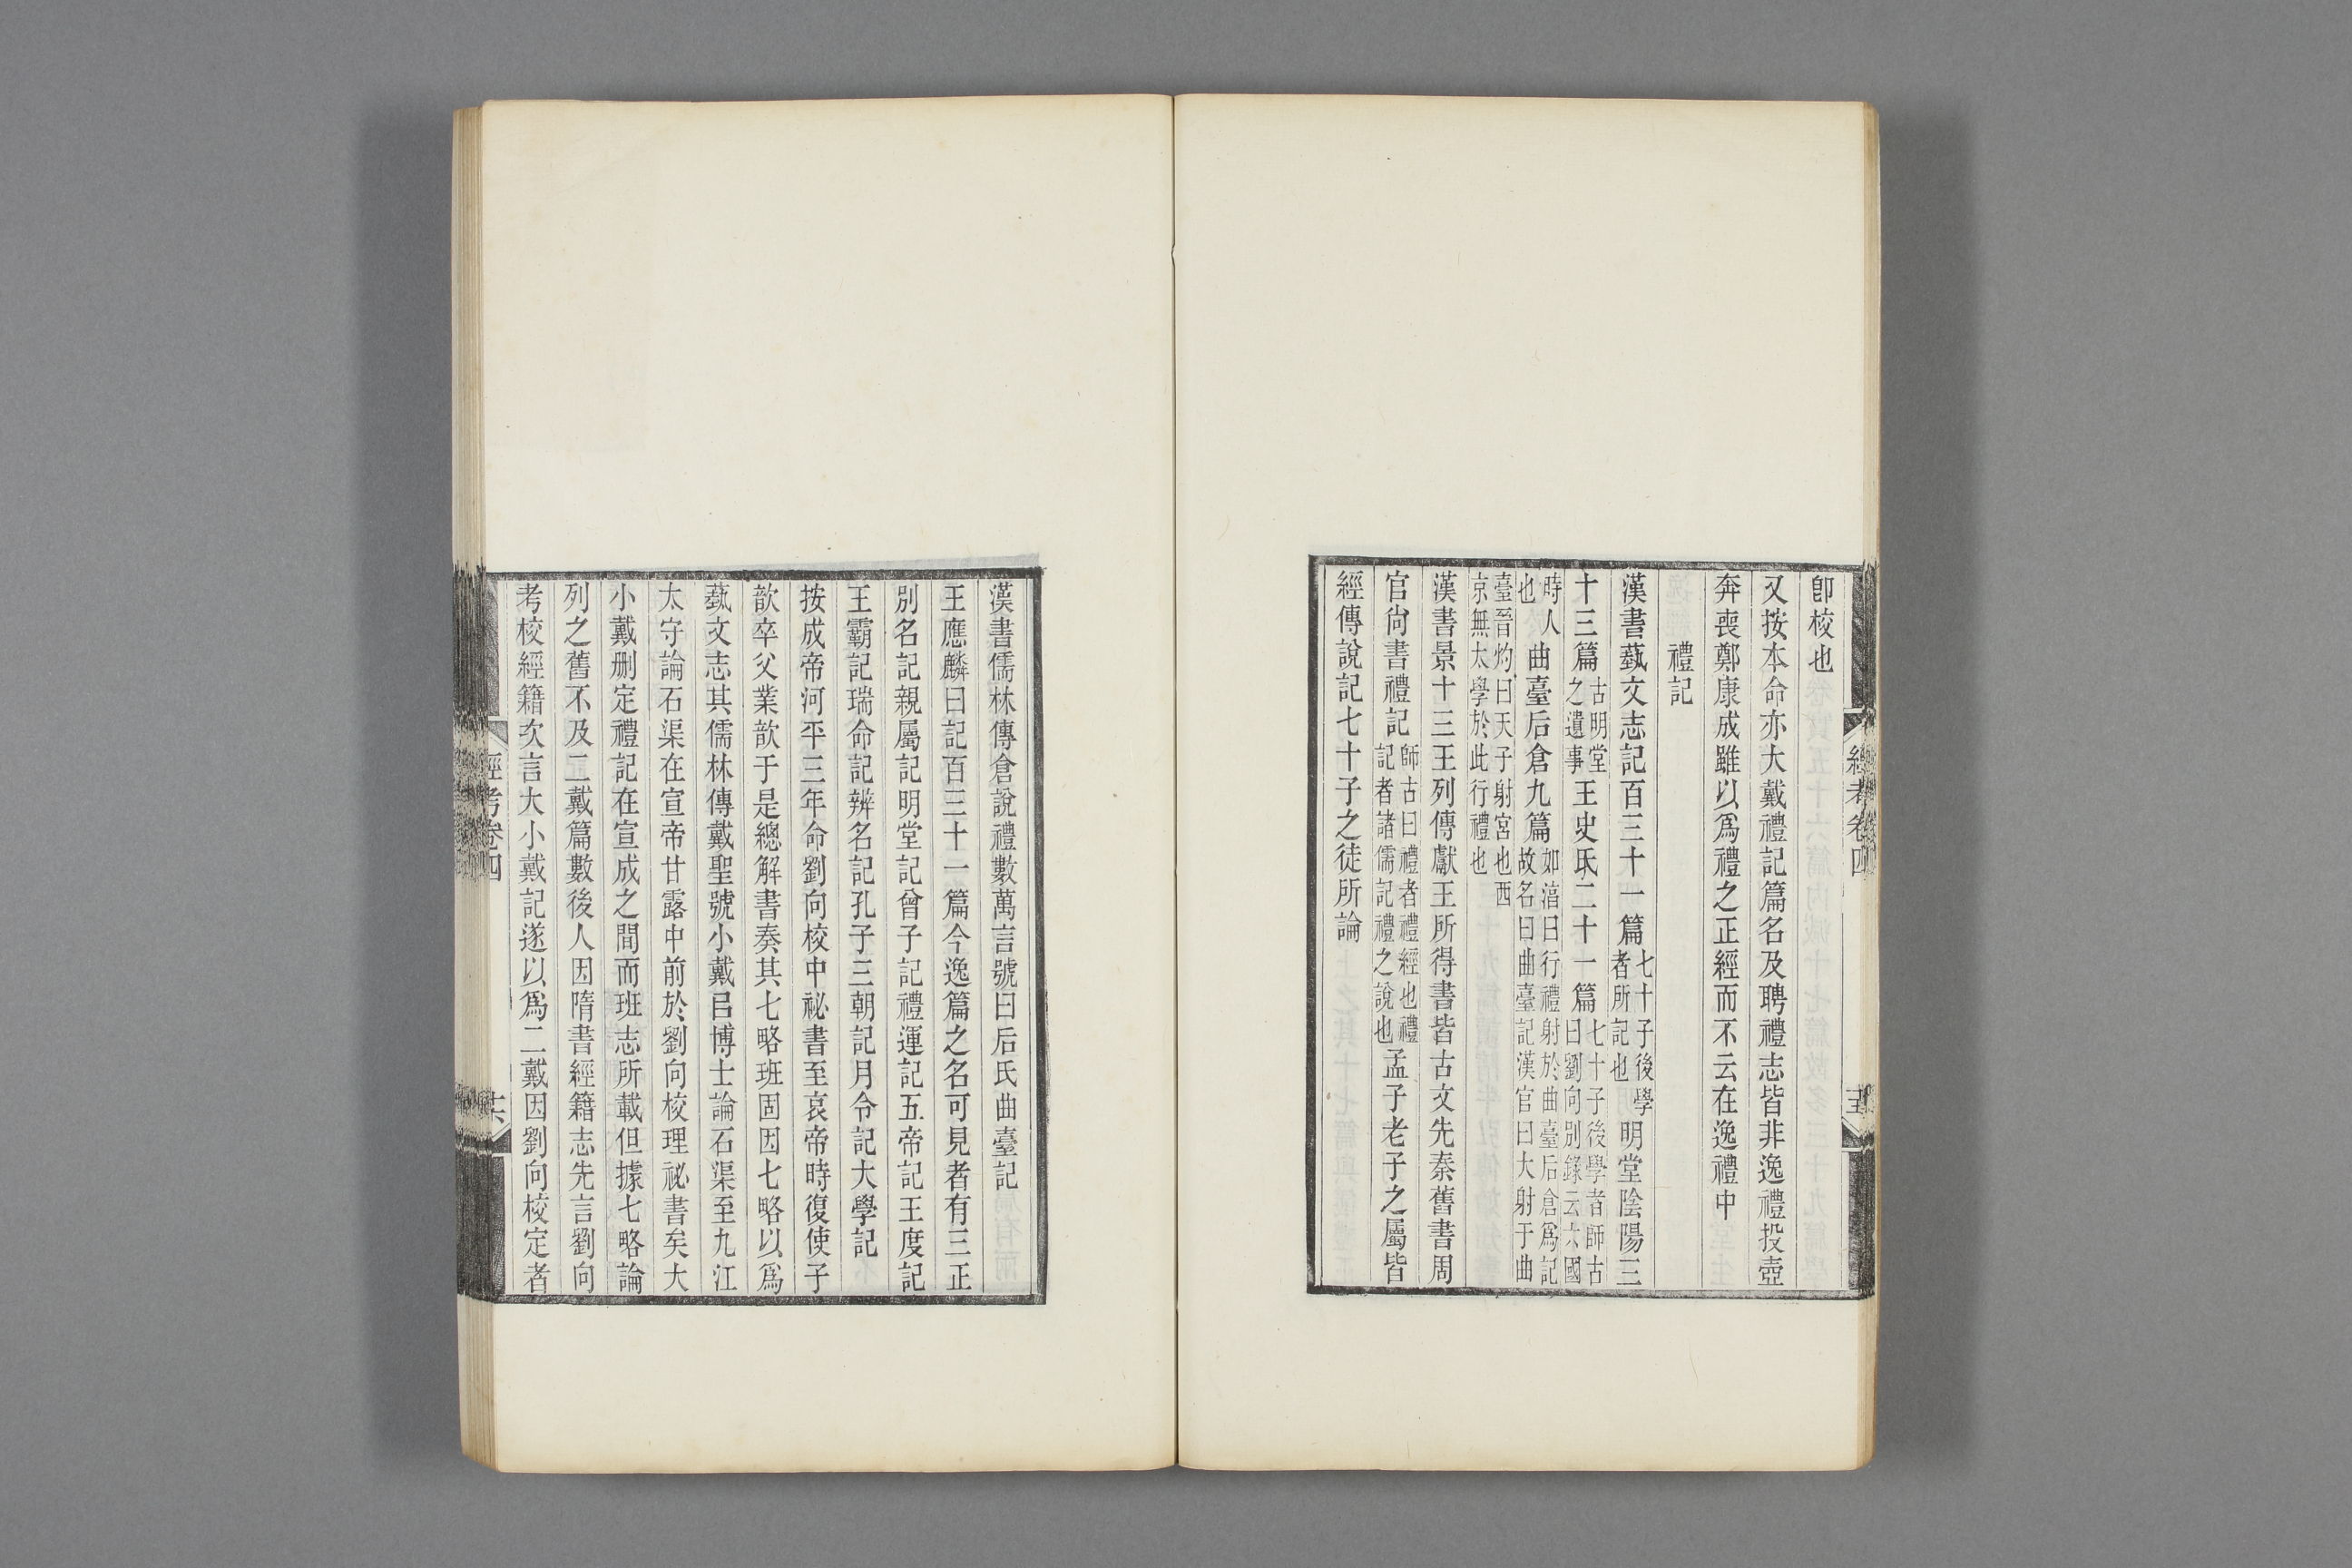 卽校也
又按本命亦大戴禮記篇名及聘禮志皆非逸禮投壺
奔喪鄭康成雖以爲禮之正經而不云在逸禮中
禮記
漢書蓺文志記百三十一篇七十子後學者所記也明堂陰陽三
十三篇古明堂之遺事王史氏二十一篇七十子後學者師古曰劉向別錄云六國
時人也曲臺后倉九篇如淔曰行禮射於曲臺后倉爲記故名曰曲臺記漢官曰大射于曲
臺晉灼曰天子射宮也西京無太學於此行禮也
漢書景十三王列傳獻王所得書皆古文先秦舊書周
官尙書禮記師古曰禮者禮經也禮記者諸儒記禮之說也孟子老子之屬皆
經傳說記七十子之徒所論
經考卷四
漢書儒林傳倉說禮數萬言號曰后氏曲臺記
王應麟曰記百三十一篇今逸篇之名可見者有三正
別名記親屬記明堂記曾子記禮運記五帝記王度記
王霸記瑞命記辨名記孔子三朝記月令記大學記
按成帝河平三年命劉向校中祕書至哀帝時復使子
歆卒父業歆于是總解書奏其七略班固因七略以爲
蓺文志其儒林傳戴聖號小戴㠯博士論石渠至九江
太守論石渠在宣帝甘露中前於劉向校理祕書矣大
小戴删定禮記在宣成之間而班志所載但據七略論
列之舊不及二戴篇數後人因隋書經籍志先言劉向
考校經籍次言大小戴記遂以爲二戴因劉向校定者
經考卷四